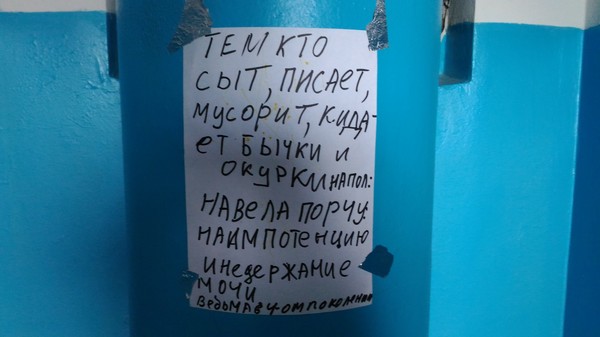 ТЕМ КТО
СЫТ, ПИСАЕТ,
МУСОРИТ, КИДА-
ЕТ БЫЧКИ И
ОКУРКИ НА ПОЛ:
НАВЕЛА ПОРЧУ:
НА ИМПОТЕНЦИЮ
И НЕДЕРЖАНИЕ
МОЧИ
ВЕДЬМА В 4ОМ ПОКОЛЕНИИ